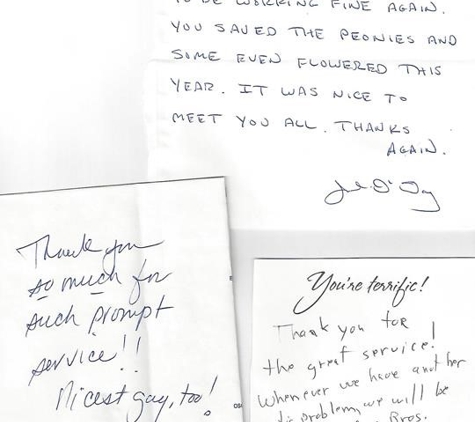 TO BE WORKING FINE AGAIN.
YOU SAVED THE PEONIES AND
SOME EVEN FLOWERED THIS
YEAR. IT WAS NICE TO
MEET YOU ALL. THANKS
AGAIN.
Thank you
so much for
such prompt
service!!
Nicest guy, too!
You're terrific!
Thank you for
the great service!
Whenever we have another
problem, we will be
Bros.